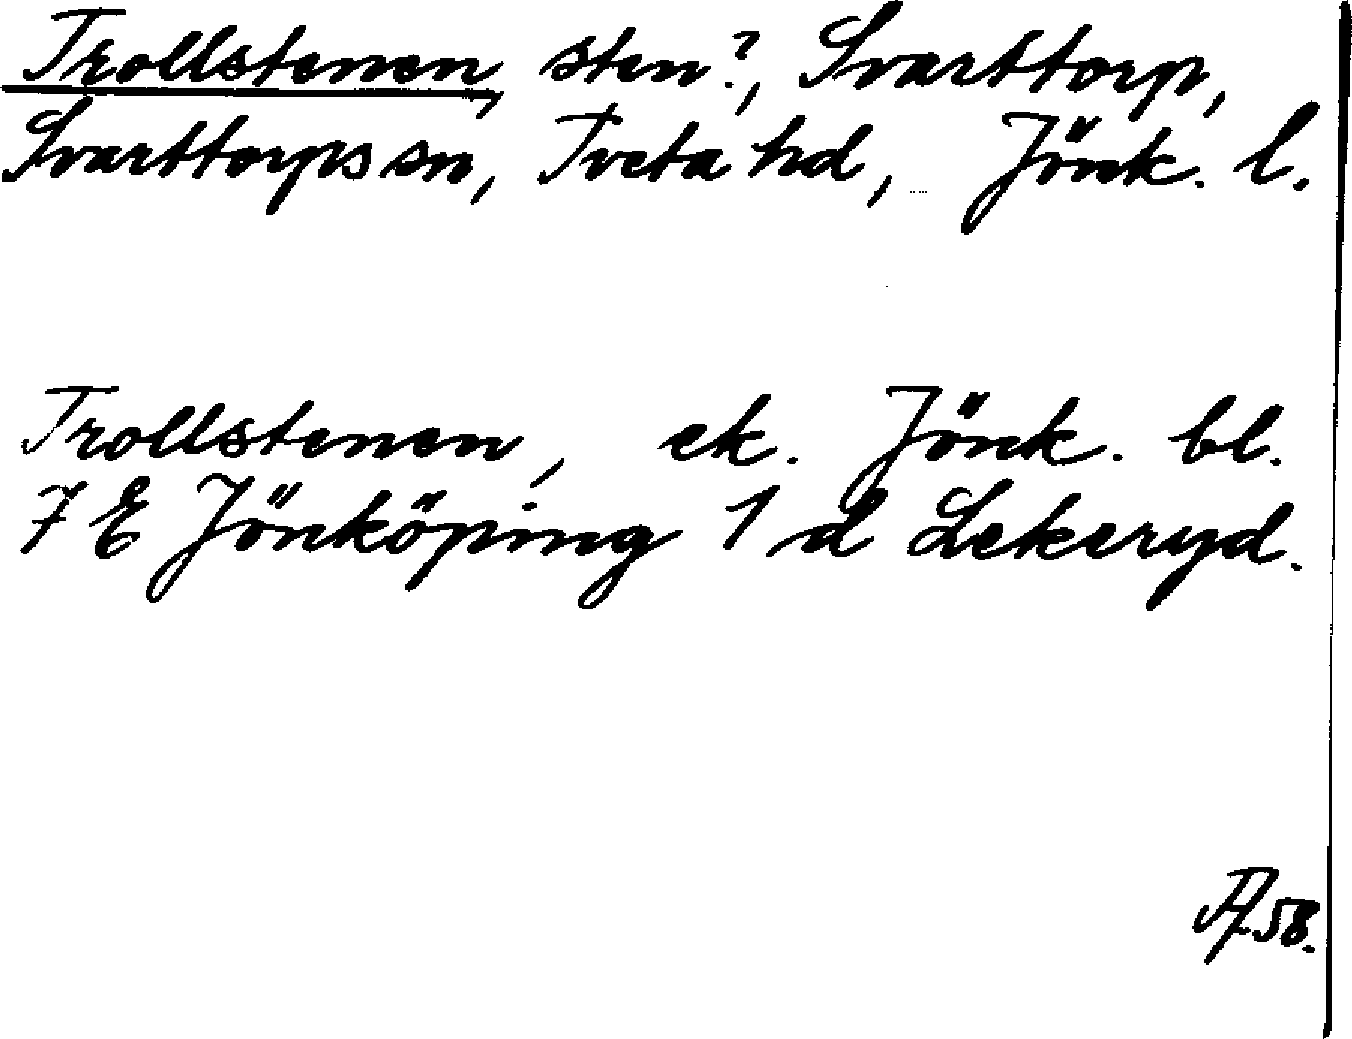 Trollstenen, sten?, Svarttorp,
Svarttorps sn, Tveta hd, Jönk. l.
Trollstenen, ek. Jönk. bl.
7 E Jönköping 1 d Lekeryd.
58.